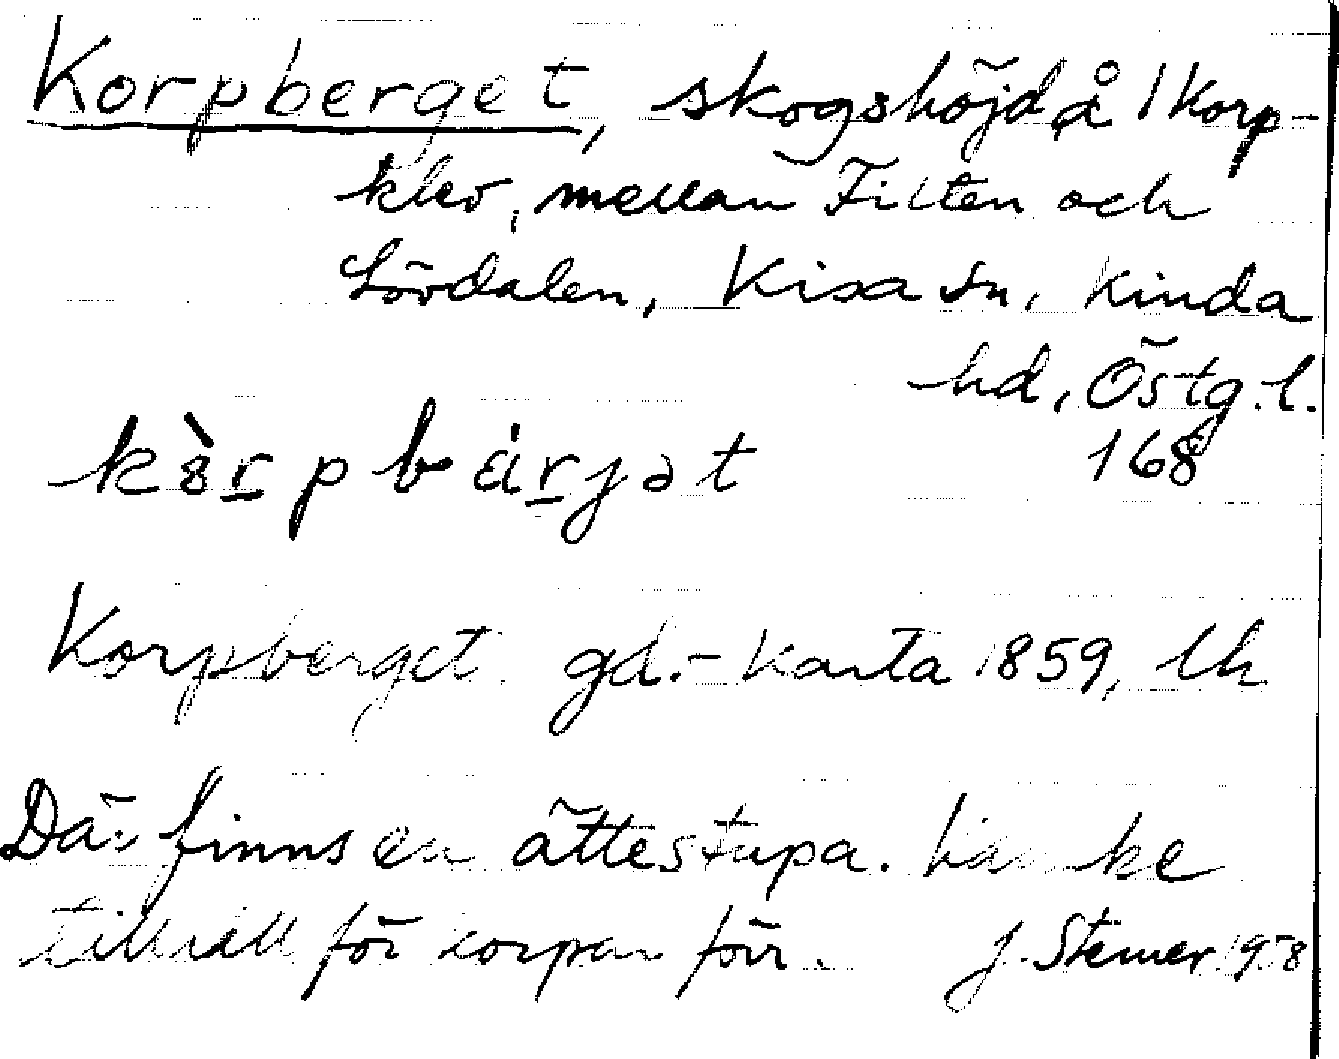 Korpberget, skogshöjd å 1 Korp-
klev, mellan Filten och
Lövdalen, Kisa sn, Kinda
hd, Östg. l.
168
Korpberget gd.-karta 1859, lk
Där finns en ättestupa. kanske
tillhåll för korpar förr. J. Stemer 1958